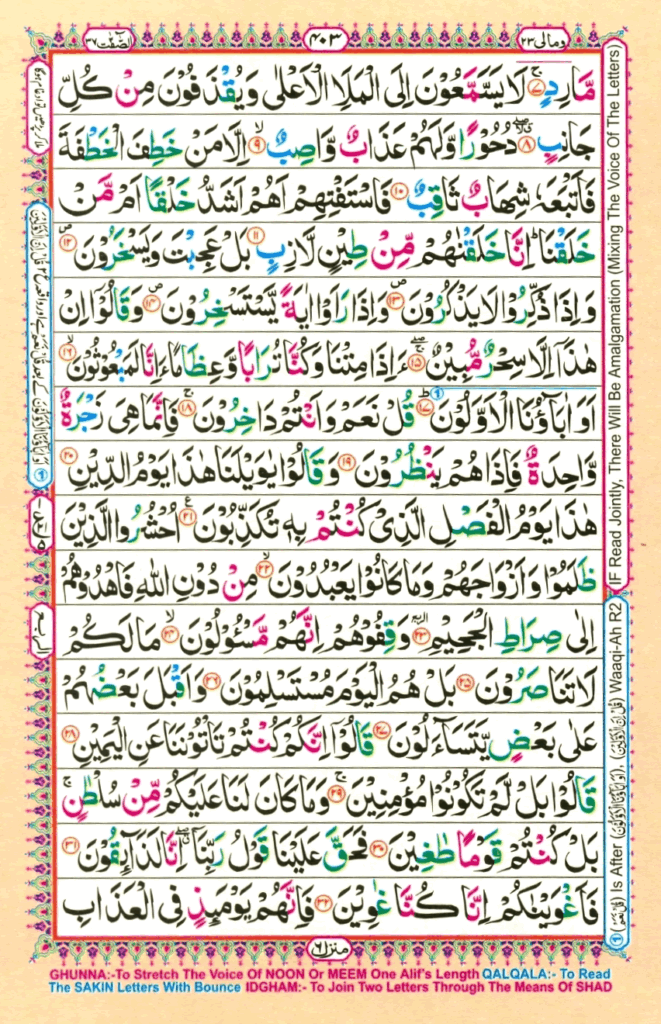 وَمَالِیَ ٢٣
٤٠٣
اَلصّٰٓفّٰت ٣٧
مَّارِدٍۚ ٧ لَا یَسَّمَّعُوْنَ اِلَی الْمَلَاِ الْاَعْلٰی وَیُقْذَفُوْنَ مِنْ كُلِّ
جَانِبٍ ٨ دُحُوْرًا وَّلَهُمْ عَذَابٌ وَّاصِبٌۙ ٩ اِلَّا مَنْ خَطِفَ الْخَطْفَةَ
فَاَتْبَعَهٗ شِهَابٌ ثَاقِبٌ ١٠ فَاسْتَفْتِهِمْ اَهُمْ اَشَدُّ خَلْقًا اَمْ مَّنْ
خَلَقْنَاؕ اِنَّا خَلَقْنٰهُمْ مِّنْ طِیْنٍ لَّازِبٍ ١١ بَلْ عَجِبْتَ وَیَسْخَرُوْنَ۪ ١٢
وَاِذَا ذُكِّرُوْا لَا یَذْكُرُوْنَ۪ ١٣ وَاِذَا رَاَوْا اٰیَةً یَّسْتَسْخِرُوْنَ۪ ١٤ وَقَالُوْۤا اِنْ
هٰذَاۤ اِلَّا سِحْرٌ مُّبِیْنٌ ١٥ ءَاِذَا مِتْنَا وَكُنَّا تُرَابًا وَّعِظَامًا ءَاِنَّا لَمَبْعُوْثُوْنَۙ ١٦
اَوَ اٰبَآؤُنَا الْاَوَّلُوْنَؕ ١٧ قُلْ نَعَمْ وَاَنْتُمْ دَاخِرُوْنَۚ ١٨ فَاِنَّمَا هِیَ زَجْرَةٌ
وَّاحِدَةٌ فَاِذَا هُمْ یَنْظُرُوْنَ ١٩ وَقَالُوْا یٰوَیْلَنَا هٰذَا یَوْمُ الدِّیْنِ ٢٠
هٰذَا یَوْمُ الْفَصْلِ الَّذِیْ كُنْتُمْ بِهٖ تُكَذِّبُوْنَ ٢١ اُحْشُرُوا الَّذِیْنَ
ظَلَمُوْا وَاَزْوَاجَهُمْ وَمَا كَانُوْا یَعْبُدُوْنَۙ ٢٢ مِنْ دُوْنِ اللّٰهِ فَاهْدُوْهُمْ
اِلٰی صِرَاطِ الْجَحِیْمِ ٢٣ وَقِفُوْهُمْ اِنَّهُمْ مَّسْـُٔوْلُوْنَۙ ٢٤ مَا لَكُمْ
لَا تَنَاصَرُوْنَ ٢٥ بَلْ هُمُ الْیَوْمَ مُسْتَسْلِمُوْنَ ٢٦ وَاَقْبَلَ بَعْضُهُمْ
عَلٰی بَعْضٍ یَّتَسَآءَلُوْنَ ٢٧ قَالُوْۤا اِنَّكُمْ كُنْتُمْ تَاْتُوْنَنَا عَنِ الْیَمِیْنِ ٢٨
قَالُوْا بَلْ لَّمْ تَكُوْنُوْا مُؤْمِنِیْنَۚ ٢٩ وَمَا كَانَ لَنَا عَلَیْكُمْ مِّنْ سُلْطٰنٍۚ
بَلْ كُنْتُمْ قَوْمًا طٰغِیْنَ ٣٠ فَحَقَّ عَلَیْنَا قَوْلُ رَبِّنَاۤ اِنَّا لَذَآىِٕقُوْنَ ٣١
فَاَغْوَیْنٰكُمْ اِنَّا كُنَّا غٰوِیْنَ ٣٢ فَاِنَّهُمْ یَوْمَىِٕذٍ فِی الْعَذَابِ
منزل ٦
IF Read Jointly, There Will Be Amalgamation (Mixing The Voice Of The Letters)
(قُلْ نَعَمْ) Is After (اَوَاٰبَآؤُنَا الْاَوَّلُوْنَ), (قُلْ اِنَّ الْاَوَّلِیْنَ) Waaqi-Ah R2
GHUNNA:-To Stretch The Voice Of NOON Or MEEM One Alif's Length QALQALA:- To Read
The SAKIN Letters With Bounce IDGHAM:- To Join Two Letters Through The Means Of SHAD